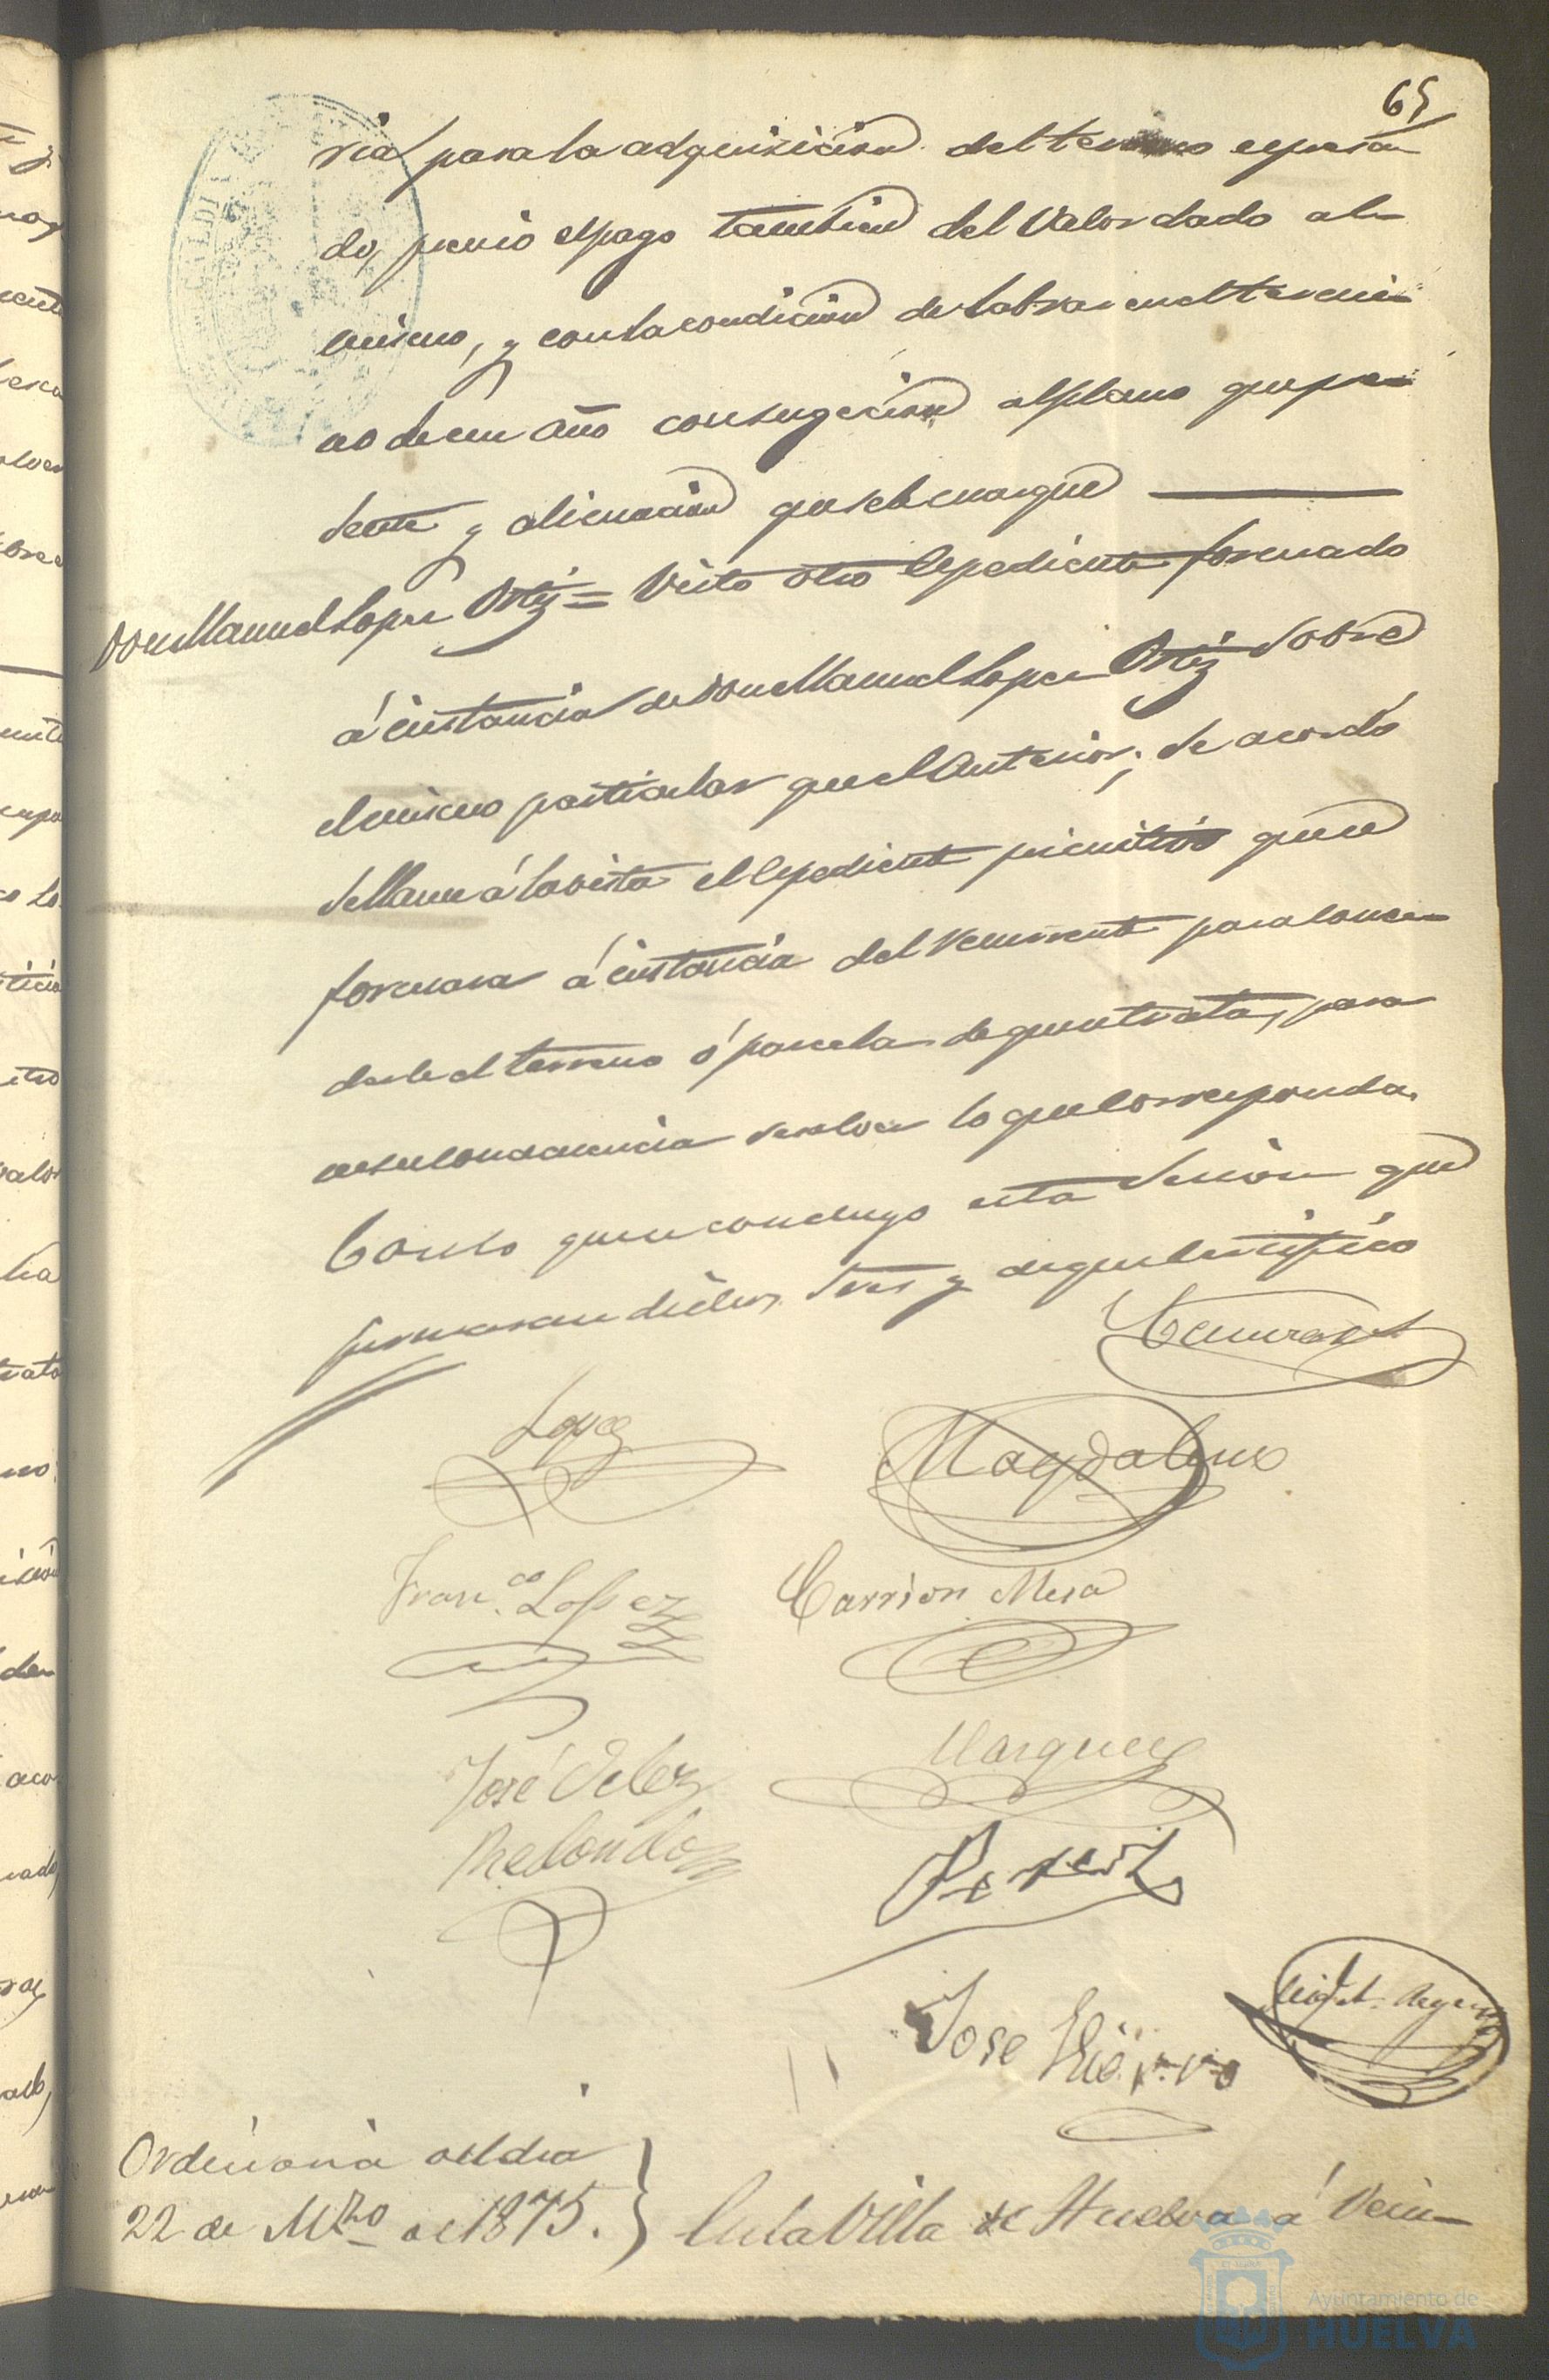 65
ria para la adquisicion del terreno espresa-
do, previo el pago tambien del Valor dado al
mismo, y con la condicion de labrar en el termi-
no de un año con sugecion al plano que pre-
sente y alineacion que se le marque
Don Manuel Lopez Ortiz = Visto otro Espediente formado
á instancia de Don Manuel Lopez Ortiz sobre
el mismo particular que el Anterior; se acordó
se llame á la vista el Espediente primitivo que se
formara á instancia del recurrente para conce-
derle el terreno ó parcela de que se trata, para
en su consecuencia resolver lo que corresponda.
Con lo que se concluyo esta Sesion que
firmaran dichos Sres y de que certifico
Lopez
Magdaleno
Fran.co Lopez
Carrion Mesa
José Velez
Redondo
Marquez
Perez
Jose Hierro
Ordinaria del dia
22 de Mzo de 1875. } En la Villa de Huelva á Vein-
Ayuntamiento de
HUELVA